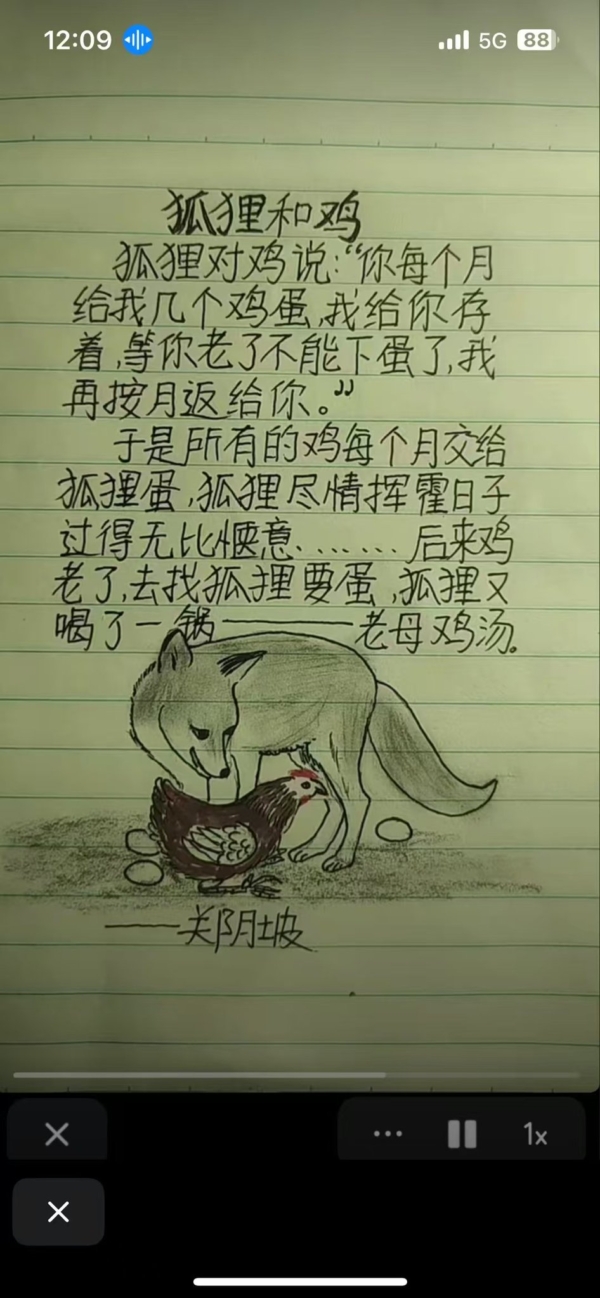 12:09
5G
88
狐狸和鸡
狐狸对鸡说:“你每个月
给我几个鸡蛋,我给你存
着,等你老了不能下蛋了,我
再按月返给你。”
于是所有的鸡每个月交给
狐狸蛋,狐狸尽情挥霍日子
过得无比惬意.……. 后来鸡
老了,去找狐狸要蛋,狐狸又
喝了一锅——老母鸡汤。
——郑阴坡
1x